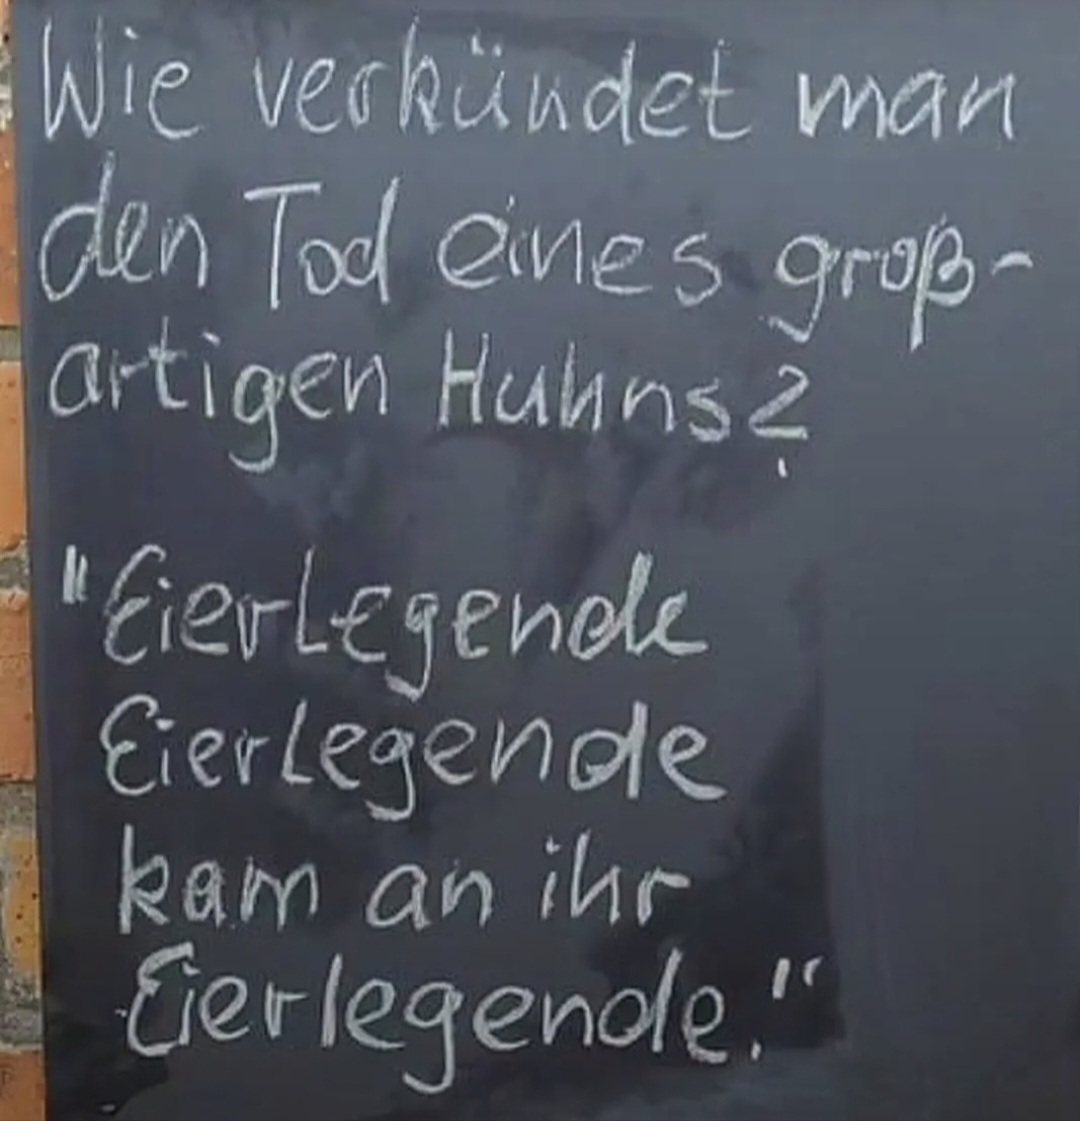 Wie verkündet man
den Tod eines groß-
artigen Huhns?
"Eierlegende
Eierlegende
kam an ihr
Eierlegende."